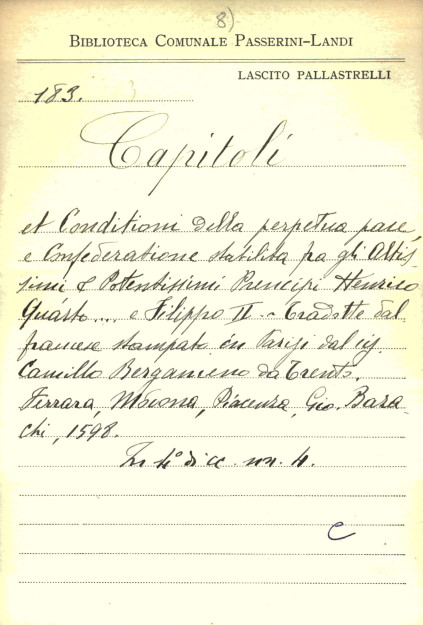 8)
BIBLIOTECA COMUNALE PASSERINI-LANDI
LASCITO PALLASTRELLI
183.
Capitoli
et Conditioni della perpetua pace,
e Confederatione stabilita fra gli Altis-
simi & Potentissimi Principi Henrico
Quarto .... e Filippo II - Tradotte dal
francese stampato in Parigi dal
Camillo da Trento.
Ferrara, Piacenza, Gio. Baza-
chi, 1598.
In 4° di cc. nn. 4.
C